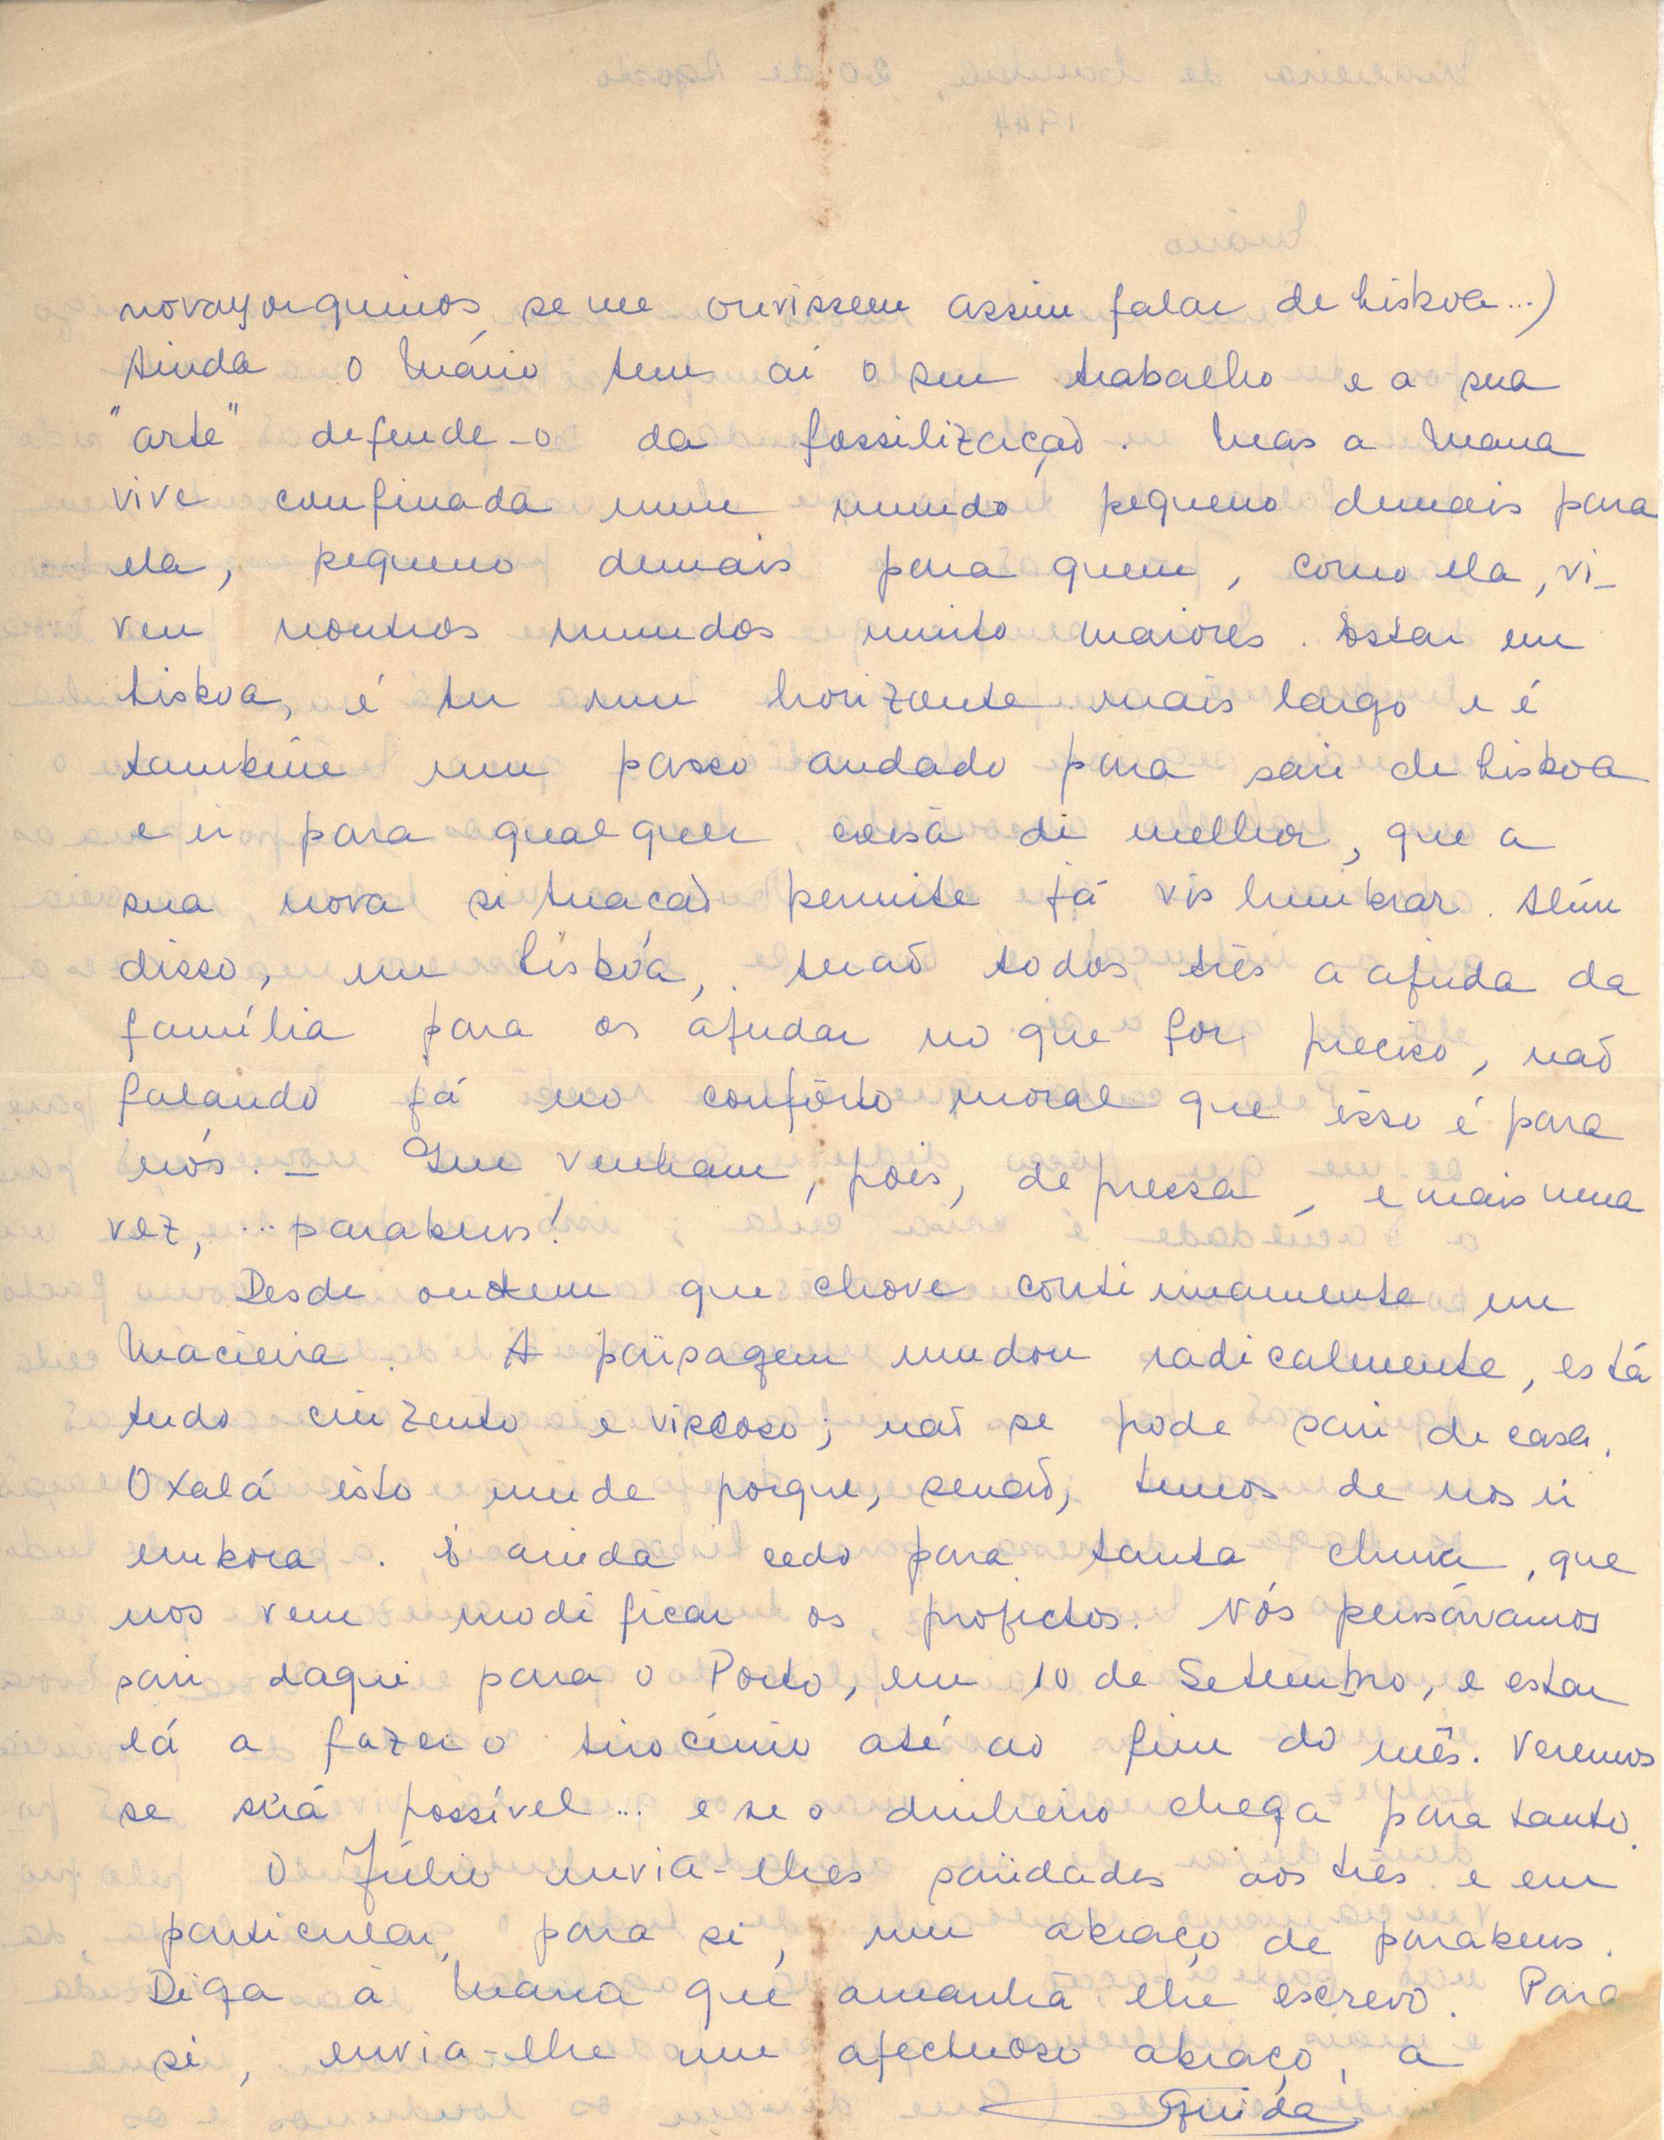 novayorquinos se me ouvissem assim falar de Lisboa...)
Ainda o Mário tem aí o seu trabalho e a sua
"arte" defende-o da fossilização. Mas a Maria
vive confinada num mundo pequeno demais para
ela, pequeno demais para quem, como ela, vi-
veu noutros mundos muito maiores. Estar em
Lisboa, é ter um horizonte mais largo e é
também um passo andado para sair de Lisboa
e ir para qualquer coisa de melhor, que a
sua nova situação permite já vislumbrar. Além
disso, em Lisboa, terão todos três a ajuda da
família para os ajudar no que for preciso, não
falando já no confôrto moral que isso é para
nós. – Que venham, pois, depressa, e mais uma
vez, ... parabens!
Desde ontem que chove continuamente em
Macieira. A païsagem mudou radicalmente, está
tudo cinzento e viscoso; não se pode sair de casa.
Oxalá isto mude porque, senão, temos de nos ir
embora. É ainda cedo para tanta chuva, que
nos vem modificar os projectos. Nós pensávamos
sair daqui para o Porto, em 10 de Setembro, e estar
lá a fazer o tirocínio até ao fim do mês. Veremos
se será possível... e se o dinheiro chega para tanto.
O Júlio envia-lhes saüdades aos três e em
particular, para si, um abraço de parabens.
Diga à Maria que amanhã lhe escrevo. Para
si, envia-lhe um afectuoso abraço, a
Guida